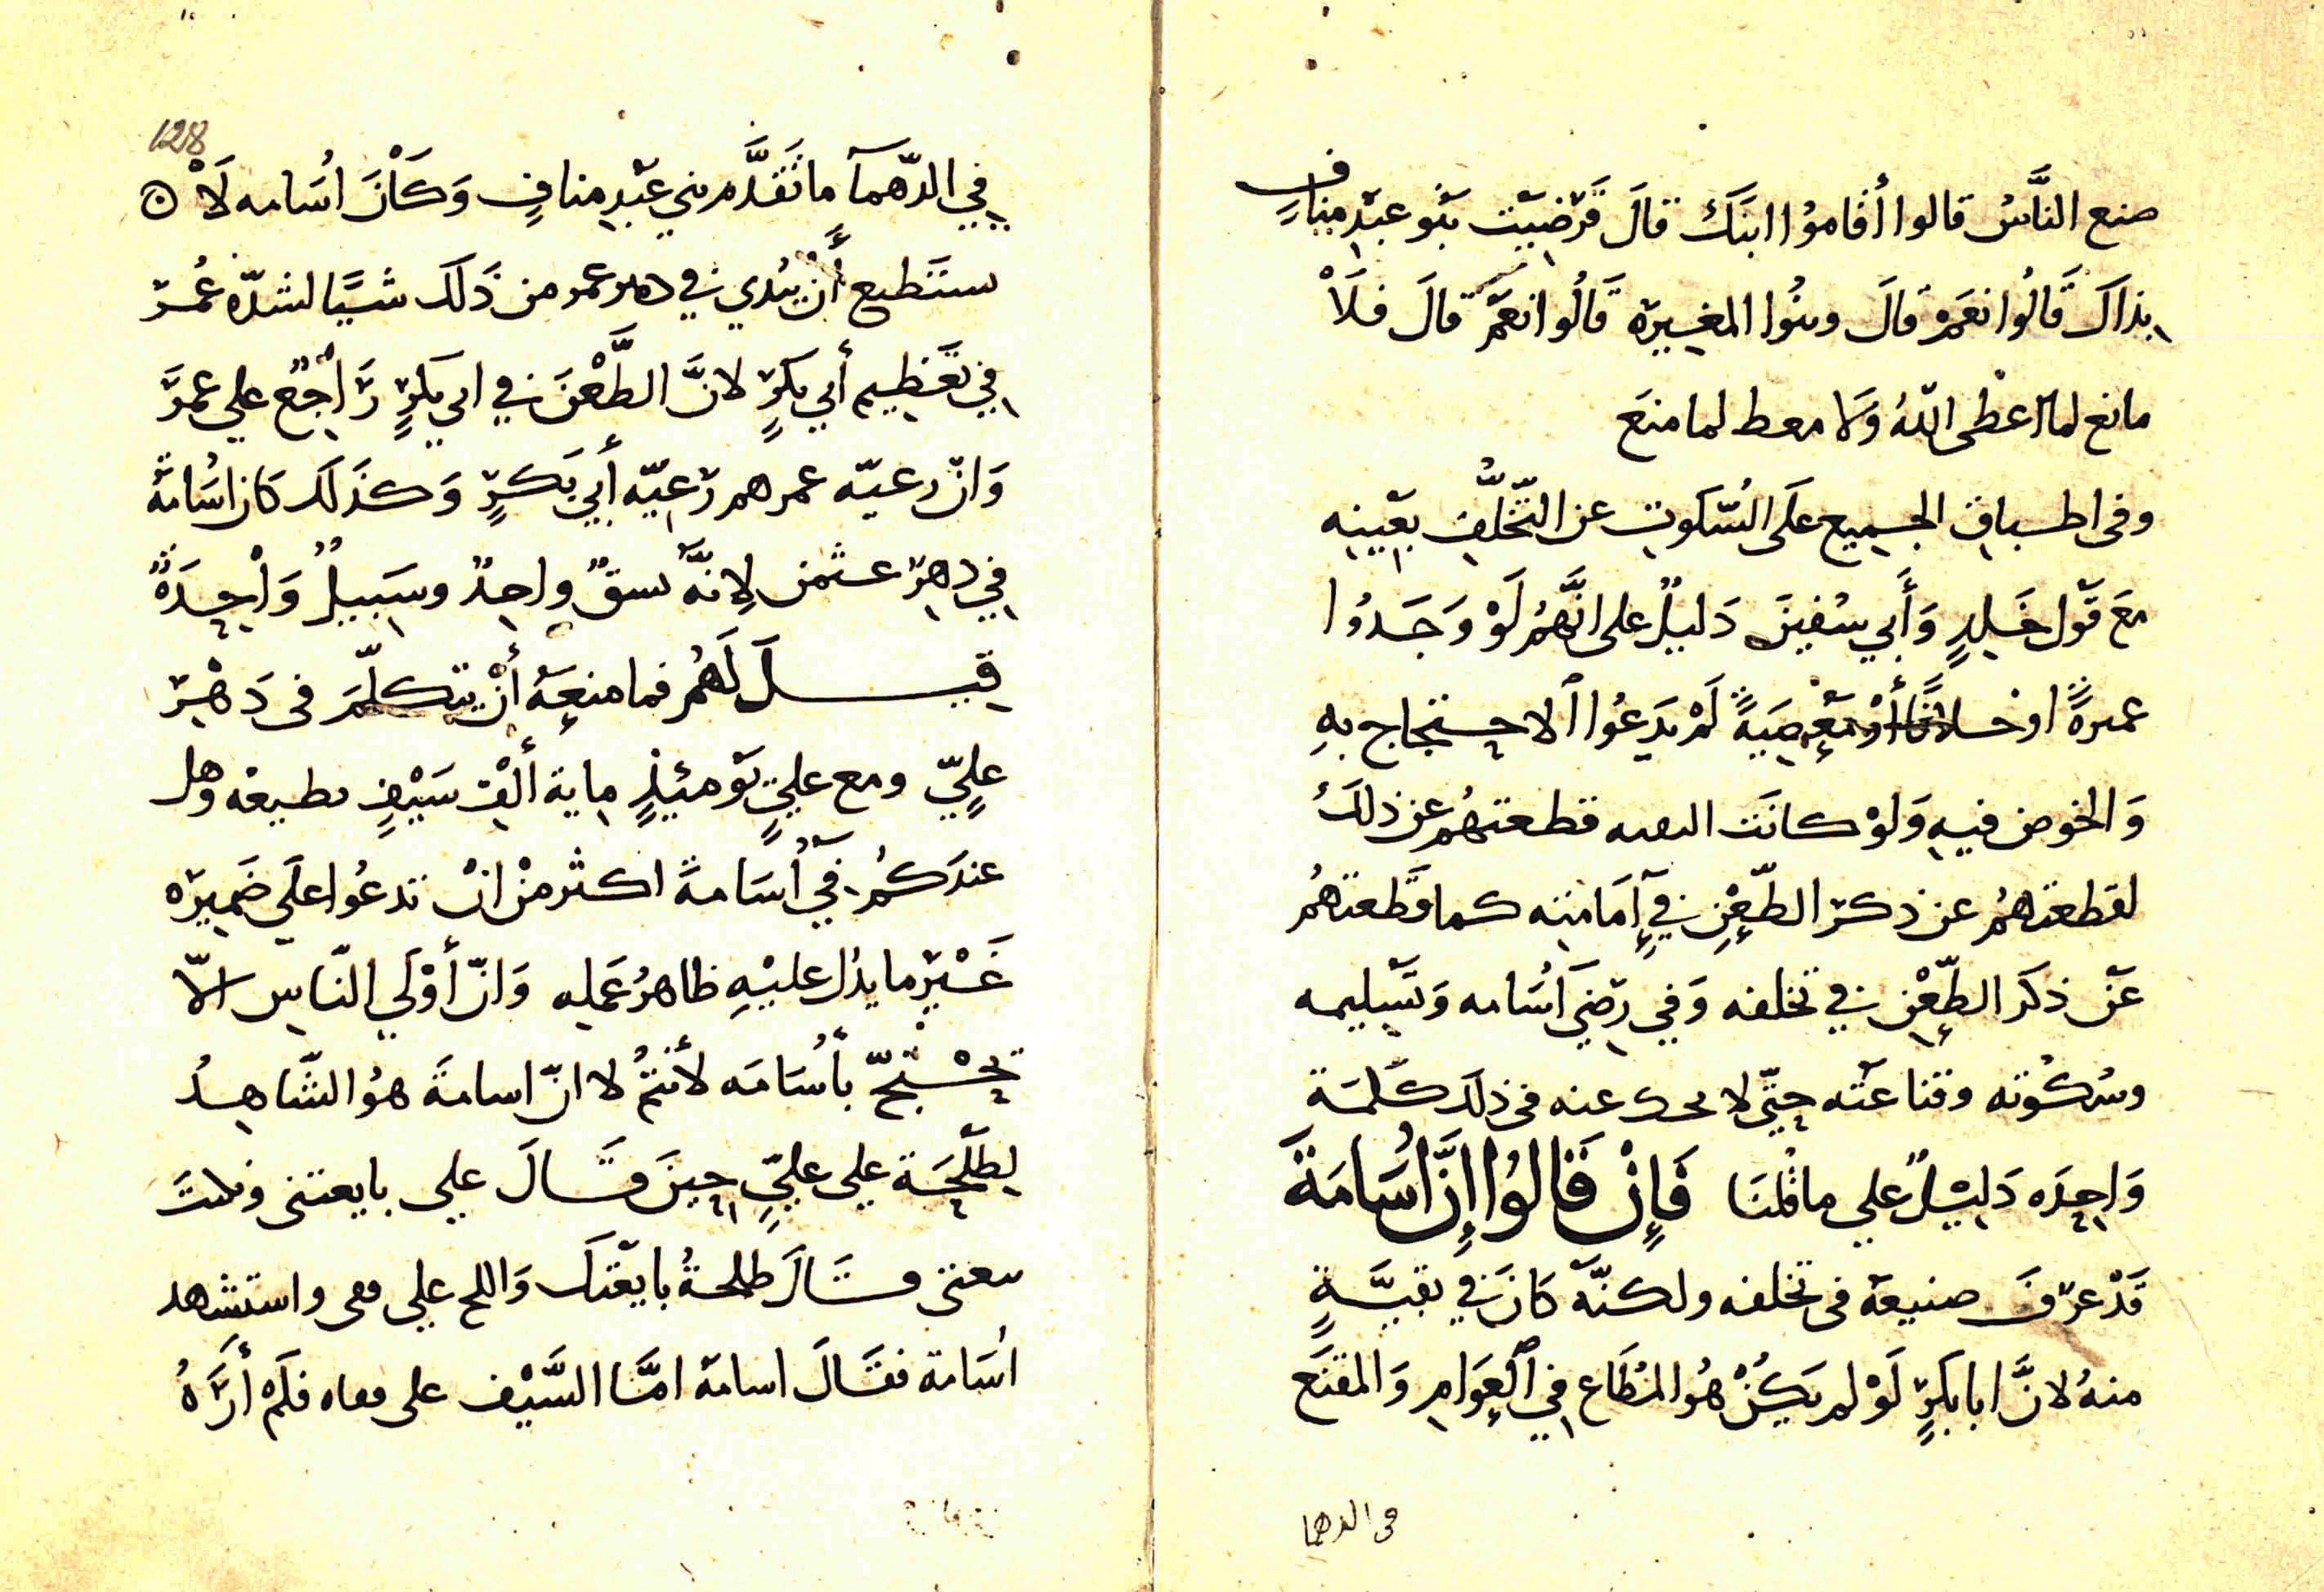 صنع النَّاسُ قالوا أقاموُا ابنَكَ قالَ فَرَضِيَت بَنُو عبدِ منافٍ
بذاكَ قَالُوا نعَمْ قالَ وبنُوا المغيرة قَالُوا نعَمْ قالَ فلَاْ
مانع لما اعْطى اللّهُ وَلا معط لما منعَ
وفى اطباق الجميع عَلَى السّكوتِ عن التّخَلُّفِ بعَيبِه
معَ قَول خَلِدٍ وَأَبي سُفينَ دَليلٌ على انَّهُمْ لَوْ وَجَدوُا
عمرةً او خلافًا أوْ معْصِيَةً لَمْ يَدَعُوا الاحتجاج بهِ
وَالخوض فيهِ وَلَوْ كانَت التقيه قطعتهُم عن ذلكَ
لقطعتهُمْ عن ذكر الطّعْنِ في إمَامَتِه كما قَطعتهُمْ
عَنْ ذكَر الطّعْنِ في تخلفه وَفي رِضَى أسَامه وَتسْليمه
وسُكُوته وقناعَتُه حتّى لا يحك عنه فى ذلكَ كَلمَة
وَاحِدَه دَليْلٌ علي ماقلنَا فَإِنْ قَالوُا إِنَّ أُسَامَةَ
قَدْ عرَفَ صنيعهَ فى تخلفه ولكنّهَ كانَ في تقيَّةٍ
منهُ لانَّ ابا بكرٍ لَوْ لم يَكُنْ هُوَ المُطَاع في العَوامِ وَالمقنَع
فى الدهما
128
في الدّهمآ ما تَقَدَّم بني عَبْدِ منافٍ وَكَاْنَ اسُامه لَاْ
ستَطيع أَنْ يُبْدي في دهر عمر من ذَلكَ شيًَا لشدّة عُمَرَ
في تعَظيم أبي بكرٍ لانَّ الطَّعْنَ في ابي بكرٍ رَاْجعٌ علي عمَرَ
وَانّ رعيّه عمر هم رَعيّه أَبي بَكرٍ وَكذَلكَ كان اسُامَةُ
في دهرِ عثمن لِانّهَ نسقٌ واحدٌ وسَبيلٌ وَاْحِدَةٌ
قيــلَ لَهُمْ فما منعَهُ أنْ يتكلّمَ فى دَهْرِ
علِيّ ومع عليٍّ يَوْمئِذٍ ماية ألْف سَيْفٍ تطيعه وهل
عندَكُمْ في أُسَامةَ اكثر منْ انْ تدعُوا عَلَي ضَميرِه
غَيْرَ ما يدُل عليْهِ ظاهرُ عَمَلِه وَانّ أوْلَي النّاسِ الّا
يَحْتَجّ بأُسَامَه لأَنتُمْ لا انّ اسامةَ هوُ الشّاهدُ
لِطَلْحَة علي عليٍّ حِينَ قَــالَ علي بايعتنى ونكثتَ
بيعتى فقَالَ طلحةُ بايعْتكَ وَاللج علي قفى واستشهد
أسَامة فقالَ اسامة امَّا السَّيْف على قفاه فلَمْ أَرَهُ